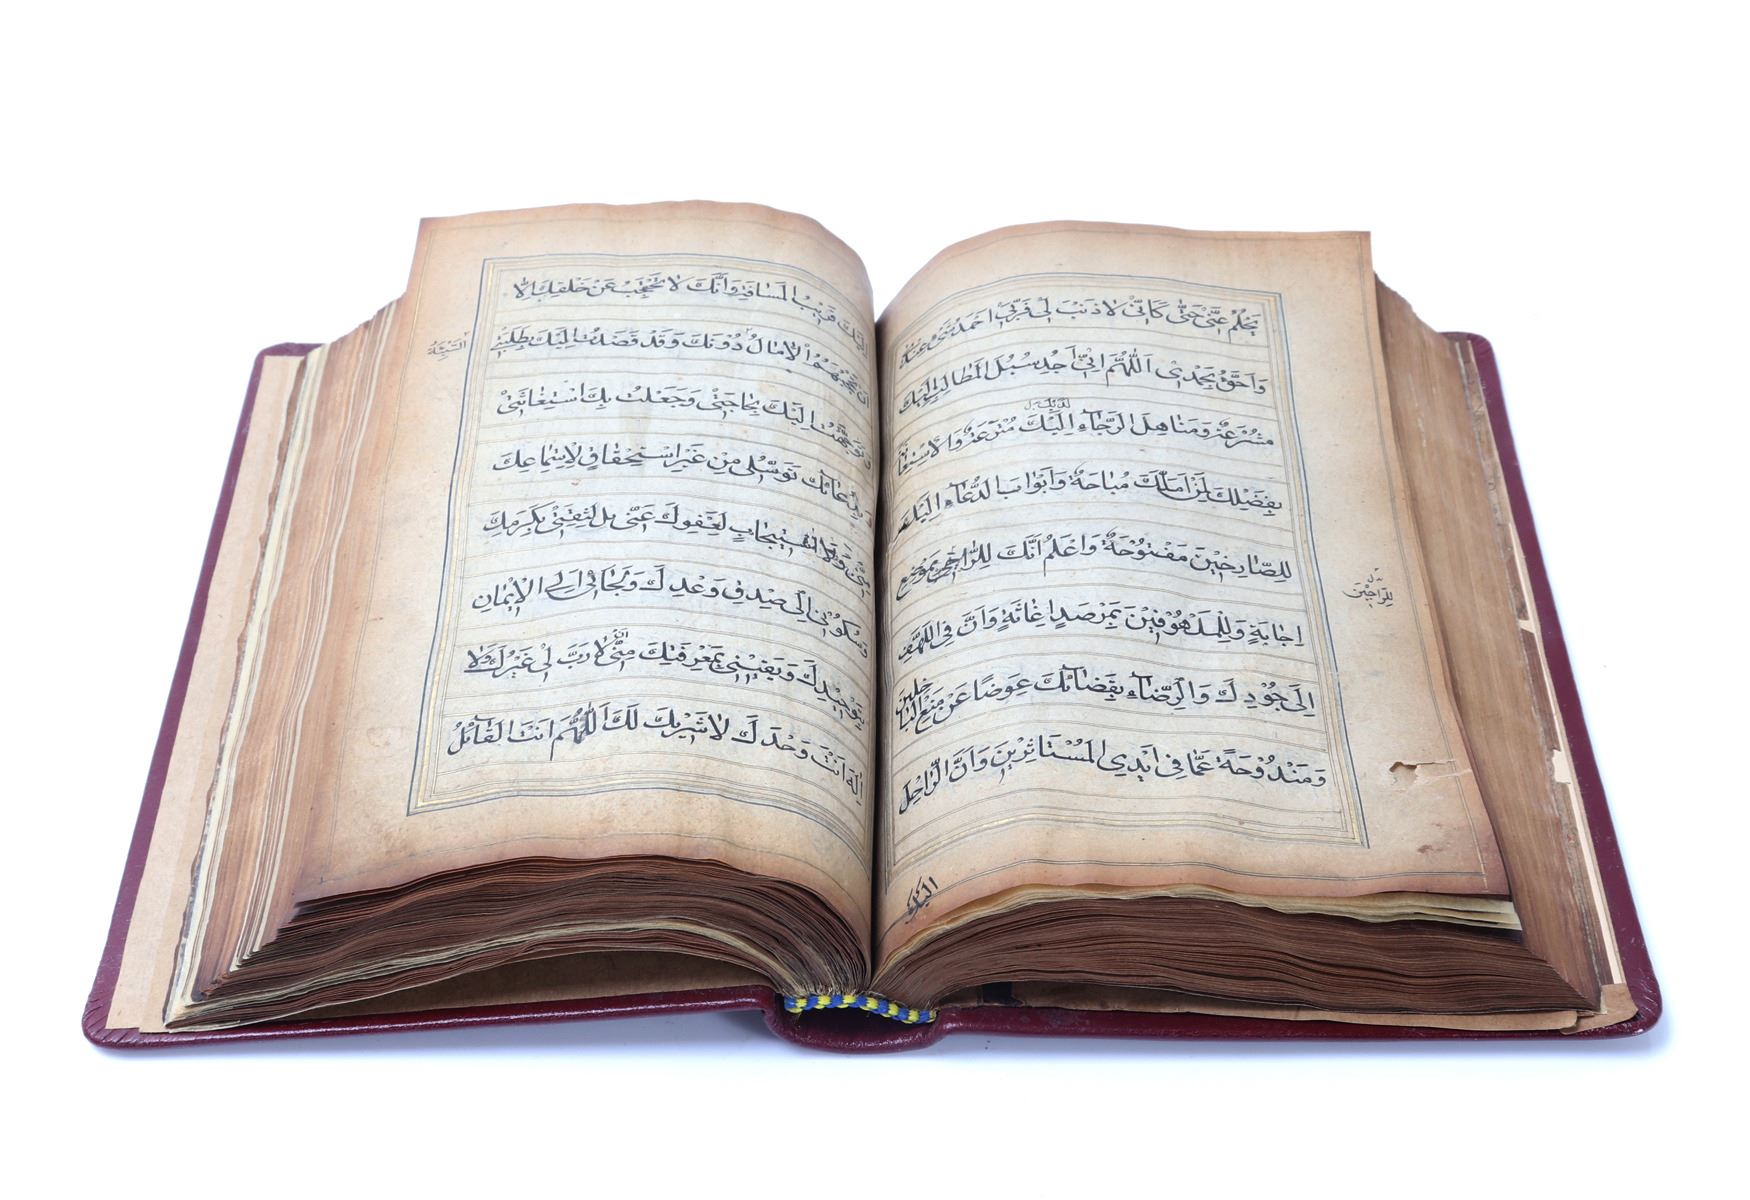 يَحْلُمُ عَنّى حَتّى كَاَنّى لا ذَنْبَ لى فَرَبّى اَحْمَدُ شَىْءٍ عِنْدى
وَاَحَقُّ بِحَمْدى اَللّهُمَّ اِنّى اَجِدُ سُبُلَ الْمَطالِبِ اِلَيْكَ
مُشْرَعَةً وَمَناهِلَ الرَّجاءِ اِلَيْكَ مُتْرَعَةً وَالاِسْتِعانَةَ
بِفَضْلِكَ لِمَنْ اَمَّلَكَ مُباحَةً وَاَبْوابَ الدُّعاءِ اِلَيْكَ
لِلصّارِخينَ مَفْتُوحَةً وَاَعْلَمُ اَنَّكَ لِلرّاجى بِمَوْضِعِ
لِلرّاجينَ
اِجابَةٍ وَلِلْمَلْهُوفينَ بِمَرْصَدِ اِغاثَةٍ وَاَنَّ فِى اللَّهْفِ
اِلى جُودِكَ وَالرِّضاءِ بِقَضائِكَ عِوَضًا عَنْ مَنْعِ الْباخِلينَ
وَمَنْدُوحَةً عَمّا فى اَيْدِى الْمُسْتَاْثِرينَ وَاَنَّ الرّاحِلَ
اِلَيْكَ
اِلَيْكَ قَريبُ الْمَسافَةِ وَاَنَّكَ لا تَحْتَجِبُ عَنْ خَلْقِكَ اِلاّ
اَنْ تَحْجُبَهُمُ الْامالُ دُونَكَ وَقَدْ قَصَدْتُ اِلَيْكَ بِطَلِبَتى
وَتَوَجَّهْتُ اِلَيْكَ بِحاجَتى وَجَعَلْتُ بِكَ اسْتِغاثَتى
وَبِدُعائِكَ تَوَسُّلى مِنْ غَيْرِ اسْتِحْقاقٍ لاِسْتِماعِكَ
مِنّى وَلاَ اسْتيجابٍ لِعَفْوِكَ عَنّى بَلْ لِثِقَتى بِكَرَمِكَ
وَسُكُونى اِلى صِدْقِ وَعْدِكَ وَلَجَائى اِلَى الْايمانِ
بِتَوْحيدِكَ وَيَقينى بِمَعْرِفَتِكَ مِنّى اَنْ لا رَبَّ لى غَيْرُكَ وَلا
اِلهَ اَنْتَ وَحْدَكَ لا شَريكَ لَكَ اَللّهُمَّ اَنْتَ الْقائِلُ